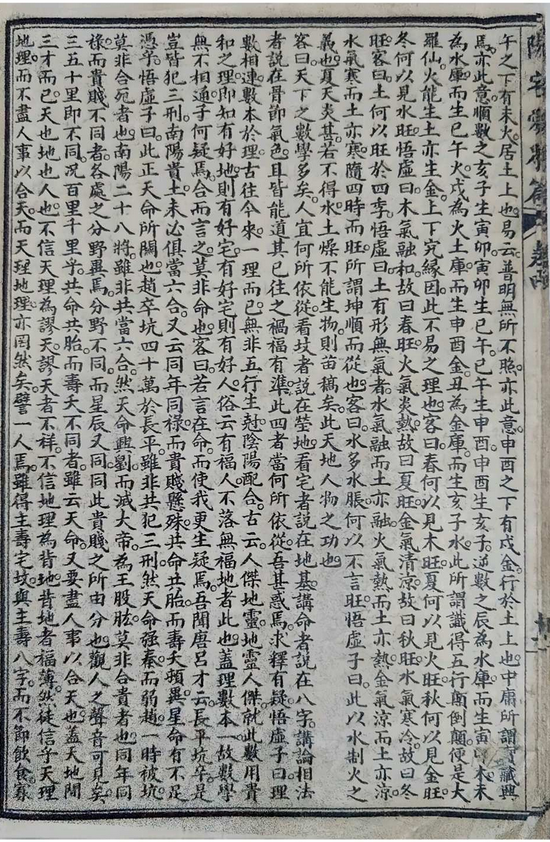 午之下有未火居土上也易云普明無所不照亦此意申酉之下有戌金行於土上也中庸所謂寶藏興
焉亦此意順數之亥子生寅卯寅卯生巳午巳午生申酉申酉生亥子逆數之辰為水庫而生寅卯木未
為木庫而生巳午火戌為火土庫而生申酉金丑為金庫而生亥子水此所謂識得五行顛倒顛便是大
羅仙火能生土亦生金上下完緣因此不易之理也客曰春何以見木旺夏何以見火旺秋何以見金旺
冬何以見水旺悟虛曰木氣融和故曰春旺火氣炎熱故曰夏旺金氣清涼故曰秋旺水氣寒冷故曰冬
旺客曰土何以旺於四季悟虛曰土有形無氣者水氣融而土亦融火氣熱而土亦熱金氣涼而土亦涼
水氣寒而土亦寒隨四時而旺所謂坤順而從也客曰水多水脹何以不言旺悟虛子曰此以水制火之
義也夏天炎甚若不得水土燥不能生物則苗槁矣此天地人物之功也
客曰天下之數學多矣人宜何所依從看坟者說在塋地看宅者說在地基講命者說在八字講論相法
者說在骨節氣色且皆能道其已往之禍福有準此四者當何所依從吾甚惑焉求釋有疑悟虛子曰理
數相連數本於理古往今來一理而已無非五行生尅陰陽配合古云人傑地靈地靈人傑就此數用貴
和之理即知有好地則有好宅有好宅則有好人俗云有福人不落無福地者此也蓋理數本一故數學
無不相通子何疑焉合而言之莫非命也客曰若言在命而使我更生疑焉吾聞唐呂才云長平坑卒是
豈皆犯三刑南陽貴土未必俱當六合又云同年同祿而貴賤懸殊共命共胎而壽夭頓異星命有不足
憑乎悟虛子曰此正天命所關也趙卒坑四十萬於長平雖非共犯三刑然天命強秦而弱趙一時被坑
莫非合宛者也南陽二十八將雖非共當六合然天命興劉而滅大帝為王股肱莫非合貴者也同年同
祿而貴賤不同者各處之分野異焉分野不同而星辰又同同此貴賤之所由分也觀人之聲音可見矣
三五十里即不同况百里千里乎共命共胎而壽夭不同者雖云天命又要盡人事以合天也蓋天地間
三才而已天也地也人也不信天理為謬天謬天者不祥不信地理為背地背地者福薄然徒信乎天理
地理而不盡人事以合天而天理地理亦罔然矣譬一人焉雖得主壽宅坟與主壽八字而不節飲食寡